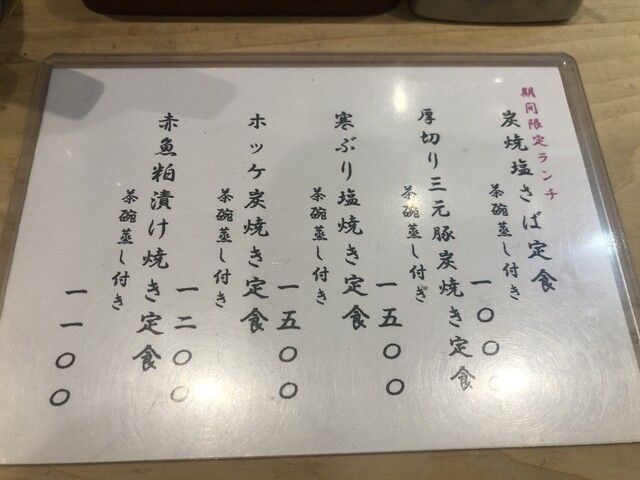 期間限定ランチ
炭焼塩さば定食
茶碗蒸し付き
一〇〇〇
厚切り三元豚炭焼き定食
茶碗蒸し付き
一五〇〇
寒ぶり塩焼き定食
茶碗蒸し付き
一五〇〇
ホッケ炭焼き定食
茶碗蒸し付き
一二〇〇
赤魚粕漬け焼き定食
茶碗蒸し付き
一一〇〇